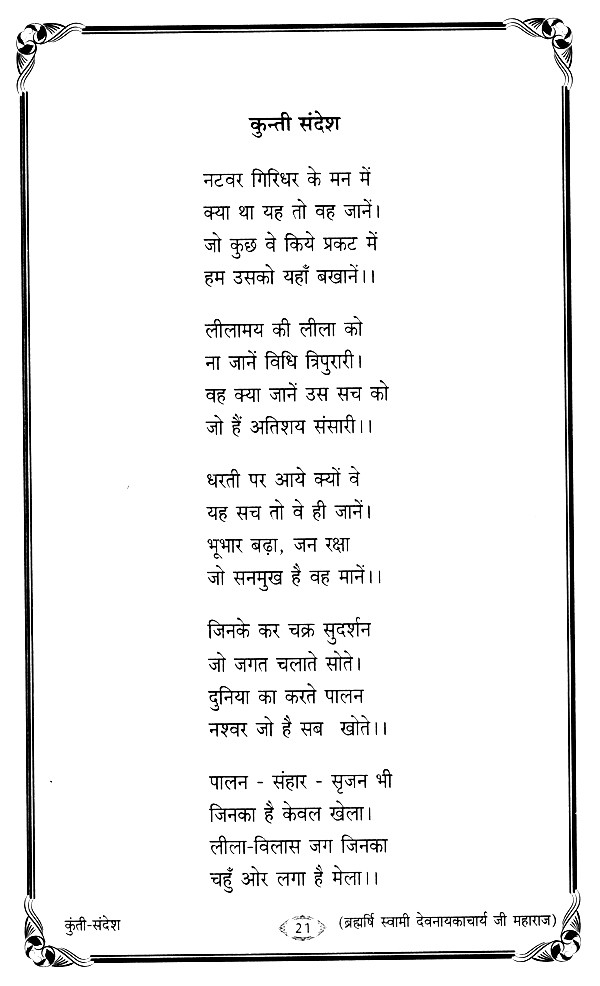 कुन्ती संदेश
नटवर गिरिधर के मन में
क्या था यह तो वह जानें।
जो कुछ वे किये प्रकट में
हम उसको यहाँ बखानें।।
लीलामय की लीला को
ना जानें विधि त्रिपुरारी।
वह क्या जानें उस सच को
जो हैं अतिशय संसारी।।
धरती पर आये क्यों वे
यह सच तो वे ही जानें।
भूभार बढ़ा, जन रक्षा
जो सनमुख है वह मानें।।
जिनके कर चक्र सुदर्शन
जो जगत चलाते सोते।
दुनिया का करते पालन
नश्वर जो है सब खोते।।
पालन - संहार - सृजन भी
जिनका है केवल खेला।
लीला-विलास जग जिनका
चहुँ ओर लगा है मेला।।
कुंती-संदेश
21
(ब्रह्मर्षि स्वामी देवनायकाचार्य जी महाराज)